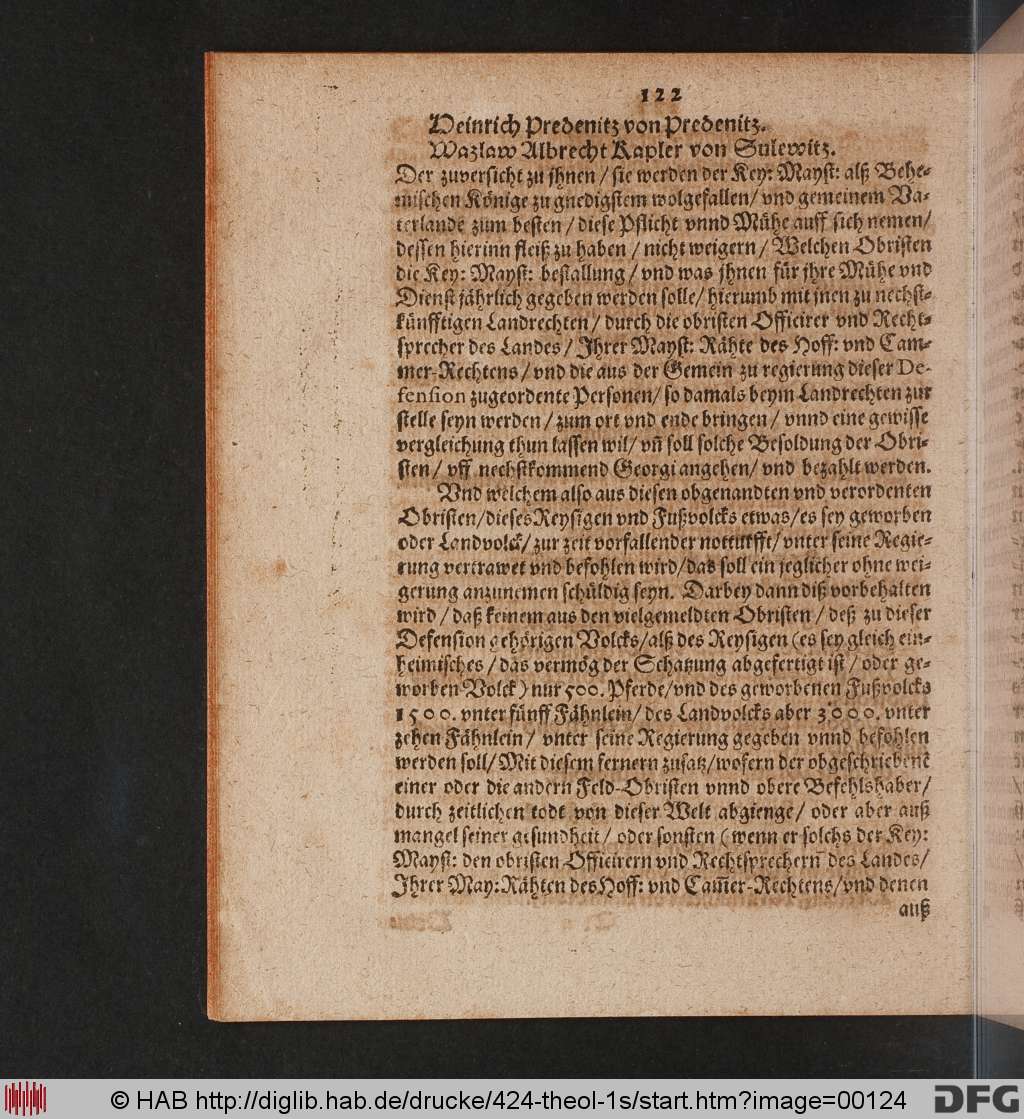 122
Heinrich Predenitz von Predenitz.
Wazlaw Albrecht Kapler von Sulewitz.
Der zuversicht zu jhnen / sie werden der Key: Mayst: alß Behe-
mischen Könige zu gnedigstem wolgefallen / vnd gemeinem Va-
terlande zum besten / diese Pflicht vnnd Mühe auff sich nemen /
dessen hierinn fleiß zu haben / nicht weigern / Welchen Obristen
die Key: Mayst: bestallung / vnd was jhnen für jhre Mühe vnd
Dienst jährlich gegeben werden solle / hierumb mit jnen zu nechst-
künfftigen Landrechten / durch die obristen Officirer vnd Recht-
sprecher des Landes / Jhrer Mayst: Rähte des Hoff: vnd Cam-
mer-Rechtens / vnd die aus der Gemein zu regierung dieser De-
fension zugeordente Personen / so damals beym Landrechten zur
stelle seyn werden / zum ort vnd ende bringen / vnnd eine gewisse
vergleichung thun lassen wil / vñ soll solche Besoldung der Obri-
sten / vff nechstkommend Georgi angehen / vnd bezahlt werden.
Vnd welchem also aus diesen obgenandten vnd verordenten
Obristen / dieses Reysigen vnd Fußvolcks etwas / es sey geworben
oder Landvolck / zur zeit vorfallender notturfft / vnter seine Regie-
rung vertrawet vnd befohlen wird / das soll ein jeglicher ohne wei-
gerung anzunemen schüldig seyn. Darbey dann diß vorbehalten
wird / daß keinem aus den vielgemeldten Obristen / deß zu dieser
Defension gehörigen Volcks / alß des Reysigen (es sey gleich ein-
heimisches / das vermög der Schatzung abgefertigt ist / oder ge-
worben Volck) nur 500. Pferde / vnd des geworbenen Fußvolcks
1500. vnter fünff Fähnlein / des Landvolcks aber 3000. vnter
zehen Fähnlein / vnter seine Regierung gegeben vnnd befohlen
werden soll / Mit diesem fernern zusatz / wofern der obgeschriebenē
einer oder die andern Feld-Obristen vnnd obere Befehlshaber /
durch zeitlichen todt von dieser Welt abgienge / oder aber auß
mangel seiner gesundheit / oder sonsten (wenn er solchs der Key:
Mayst: den obristen Officirern vnd Rechtsprechern des Landes /
Jhrer May: Rähten des Hoff: vnd Cam̃er-Rechtens / vnd denen
auß
© HAB http://diglib.hab.de/drucke/424-theol-1s/start.htm?image=00124
DFG